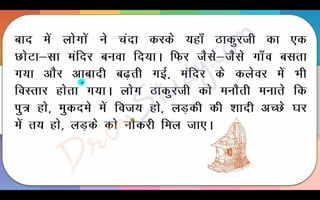 बाद में लोगों ने चंदा करके यहाँ ठाकुरजी का एक
छोटा-सा मंदिर बनवा दिया। फिर जैसे-जैसे गाँव बसता
गया और आबादी बढ़ती गई, मंदिर के कलेवर में भी
विस्तार होता गया। लोग ठाकुरजी को मनौती मनाते कि
पुत्र हो, मुकदमे में विजय हो, लड़की की शादी अच्छे घर
में तय हो, लड़के को नौकरी मिल जाए।